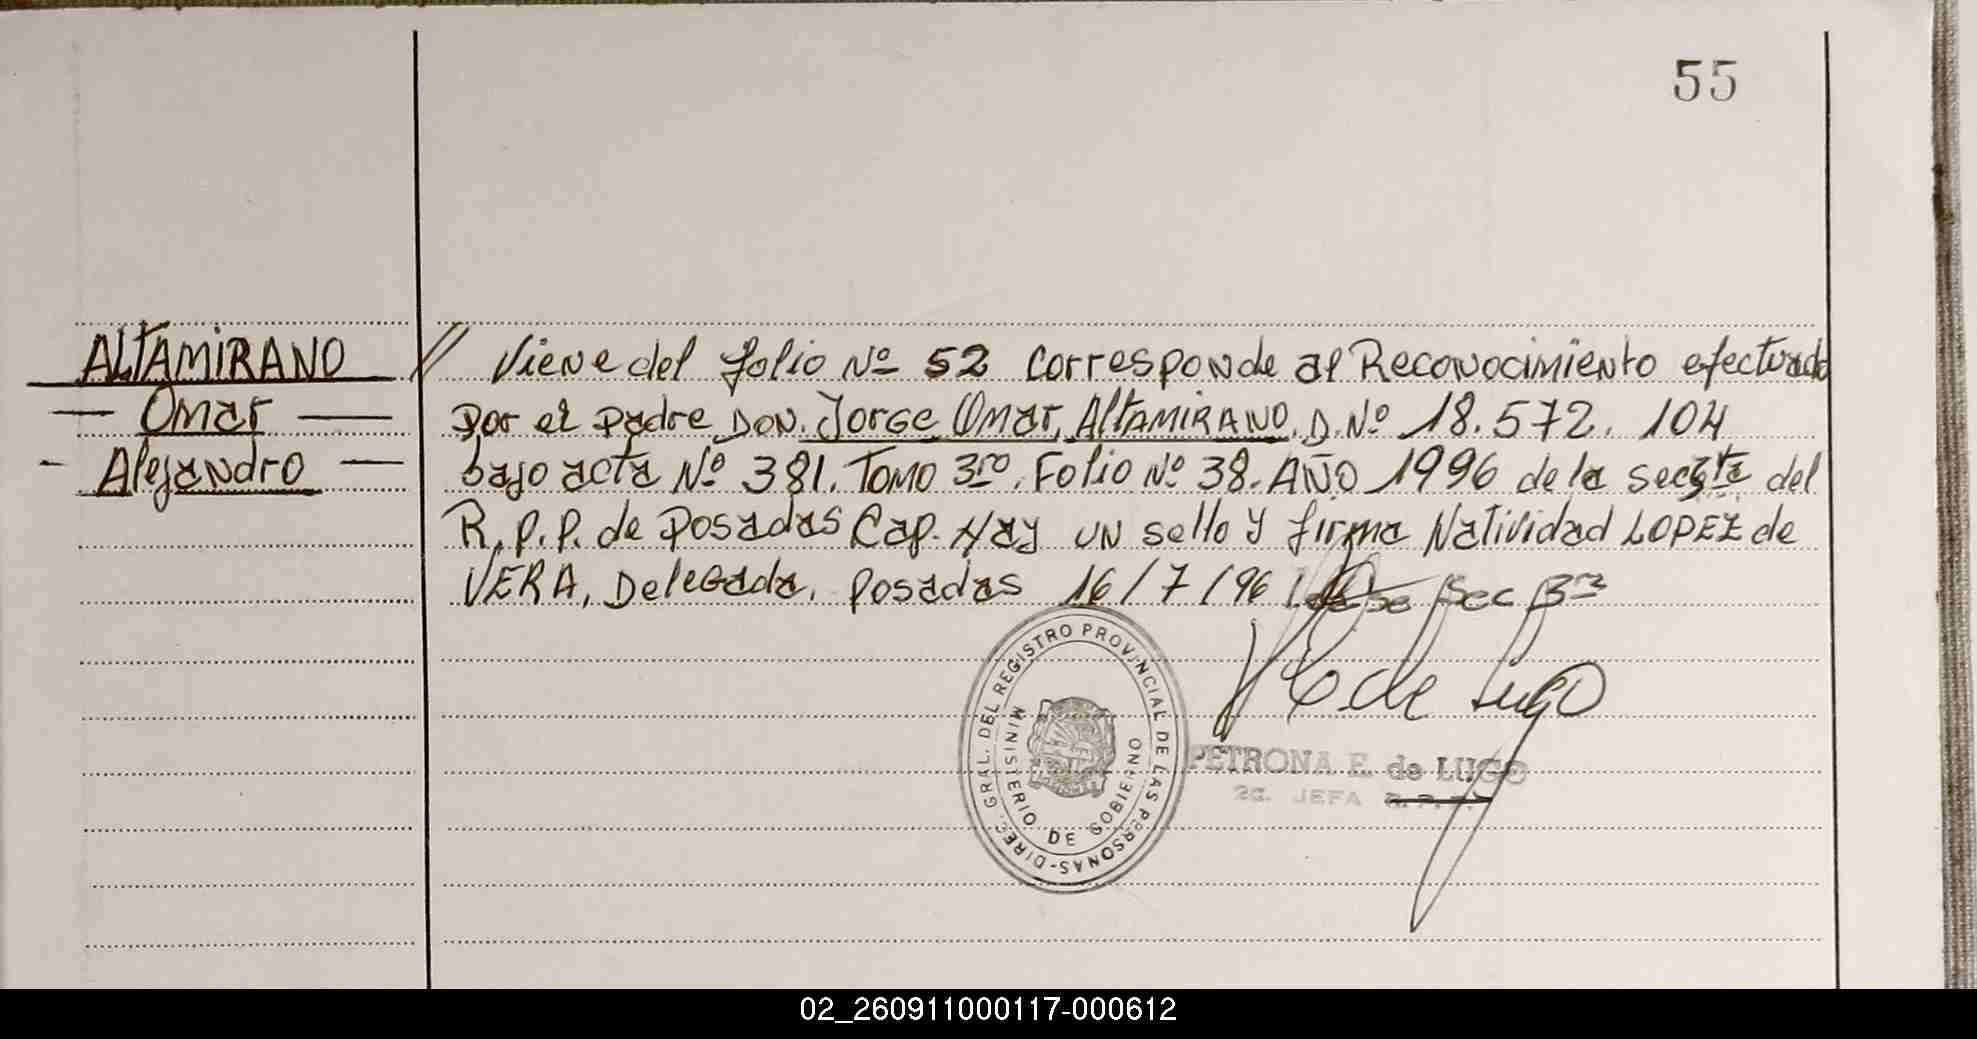 55
ALTAMIRANO
— Omar —
- Alejandro —
// Viene del folio Nº 52 Corresponde al Reconocimiento efectuado
por el padre DON. Jorge Omar, ALTAMIRANO. D.Nº 18.572.104
bajo acta Nº 381. TOMO 3ro. Folio Nº 38. AÑO 1996 de la del
R.P.P. de Posadas Cap. Hay UN sello y firma Natividad LOPEZ de
VERA, Delegada. Posadas 16/7/96 Sec
de Lugo
PETRONA E. de LUGO
2a. JEFA R.P.P.
DIREC. GRAL. DEL REGISTRO PROVINCIAL DE LAS PERSONAS-
MINISTERIO DE GOBIERNO
02_260911000117-000612